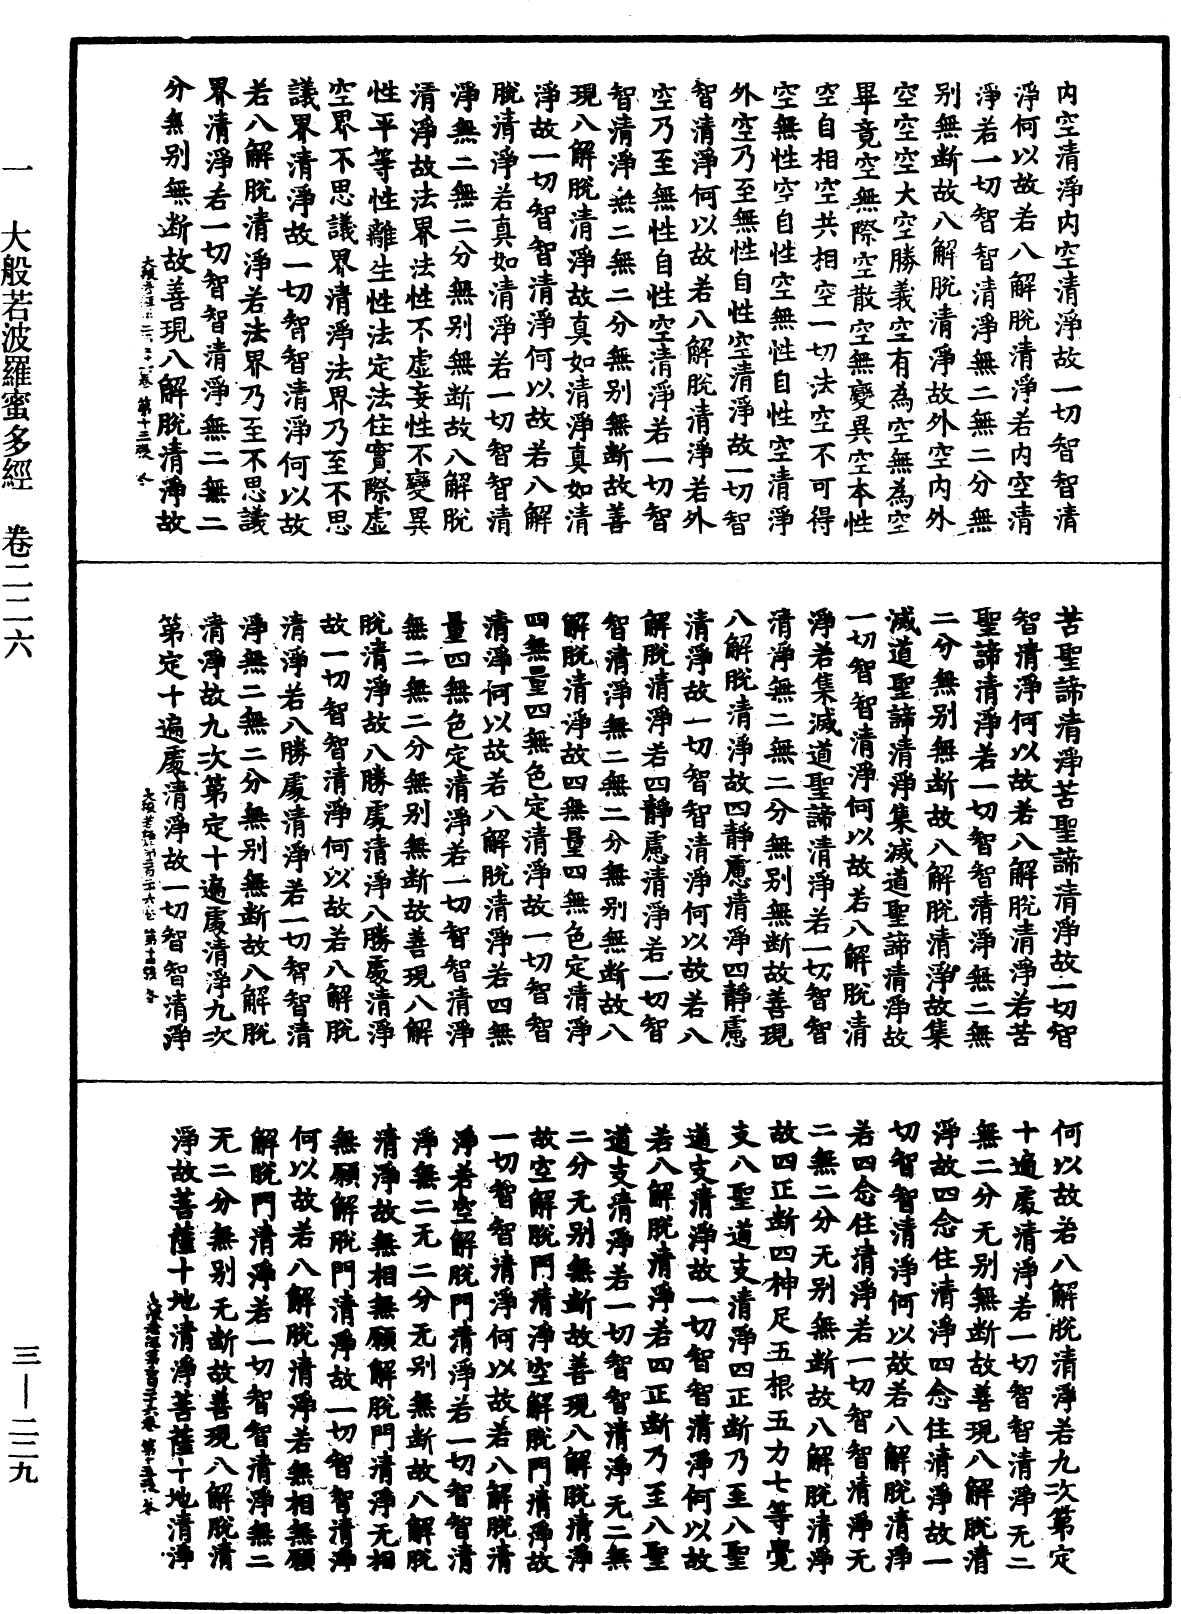 一 大般若波羅蜜多經 卷二二六
内空清淨内空清淨故一切智智清
淨何以故若八解脫清淨若内空清
淨若一切智智清淨無二無二分無
别無斷故八解脫清淨故外空内外
空空空大空勝義空有為空無為空
畢竟空無際空散空無變異空本性
空自相空共相空一切法空不可得
空無性空自性空無性自性空清淨
外空乃至無性自性空清淨故一切智
智清淨何以故若八解脫清淨若外
空乃至無性自性空清淨若一切智
智清淨無二無二分無别無斷故善
現八解脫清淨故真如清淨真如清
淨故一切智智清淨何以故若八解
脫清淨若真如清淨若一切智智清
淨無二無二分無别無斷故八解脫
清淨故法界法性不虛妄性不變異
性平等性離生性法定法住實際虛
空界不思議界清淨法界乃至不思
議界清淨故一切智智清淨何以故
若八解脫清淨若法界乃至不思議
界清淨若一切智智清淨無二無二
分無别無斷故善現八解脫清淨故
卷 第十三張
苦聖諦清淨苦聖諦清淨故一切智
智清淨何以故若八解脫清淨若苦
聖諦清淨若一切智智清淨無二無
二分無别無斷故八解脫清淨故集
滅道聖諦清淨集滅道聖諦清淨故
一切智智清淨何以故若八解脫清
淨若集滅道聖諦清淨若一切智智
清淨無二無二分無别無斷故善現
八解脫清淨故四靜慮清淨四靜慮
清淨故一切智智清淨何以故若八
解脫清淨若四靜慮清淨若一切智
智清淨無二無二分無别無斷故八
解脫清淨故四無量四無色定清淨
四無量四無色定清淨故一切智智
清淨何以故若八解脫清淨若四無
量四無色定清淨若一切智智清淨
無二無二分無别無斷故善現八解
脫清淨故八勝處清淨八勝處清淨
故一切智智清淨何以故若八解脫
清淨若八勝處清淨若一切智智清
淨無二無二分無别無斷故八解脫
清淨故九次第定十遍處清淨九次
第定十遍處清淨故一切智智清淨
第十四張
何以故若八解脫清淨若九次第定
十遍處清淨若一切智智清淨无二
無二分无别無斷故善現八解脫清
淨故四念住清淨四念住清淨故一
切智智清淨何以故若八解脫清淨
若四念住清淨若一切智智清淨无
二無二分无别無斷故八解脫清淨
故四正斷四神足五根五力七等覺
支八聖道支清淨四正斷乃至八聖
道支清淨故一切智智清淨何以故
若八解脫清淨若四正斷乃至八聖
道支清淨若一切智智清淨无二無
二分无别無斷故善現八解脫清淨
故空解脫門清淨空解脫門清淨故
一切智智清淨何以故若八解脫清
淨若空解脫門清淨若一切智智清
淨無二无二分无别無斷故八解脫
清淨故無相無願解脫門清淨无相
無願解脫門清淨故一切智智清淨
何以故若八解脫清淨若無相無願
解脫門清淨若一切智智清淨無二
无二分無别无斷故善現八解脫清
淨故菩薩十地清淨菩薩十地清淨
第十五張
三—二三九